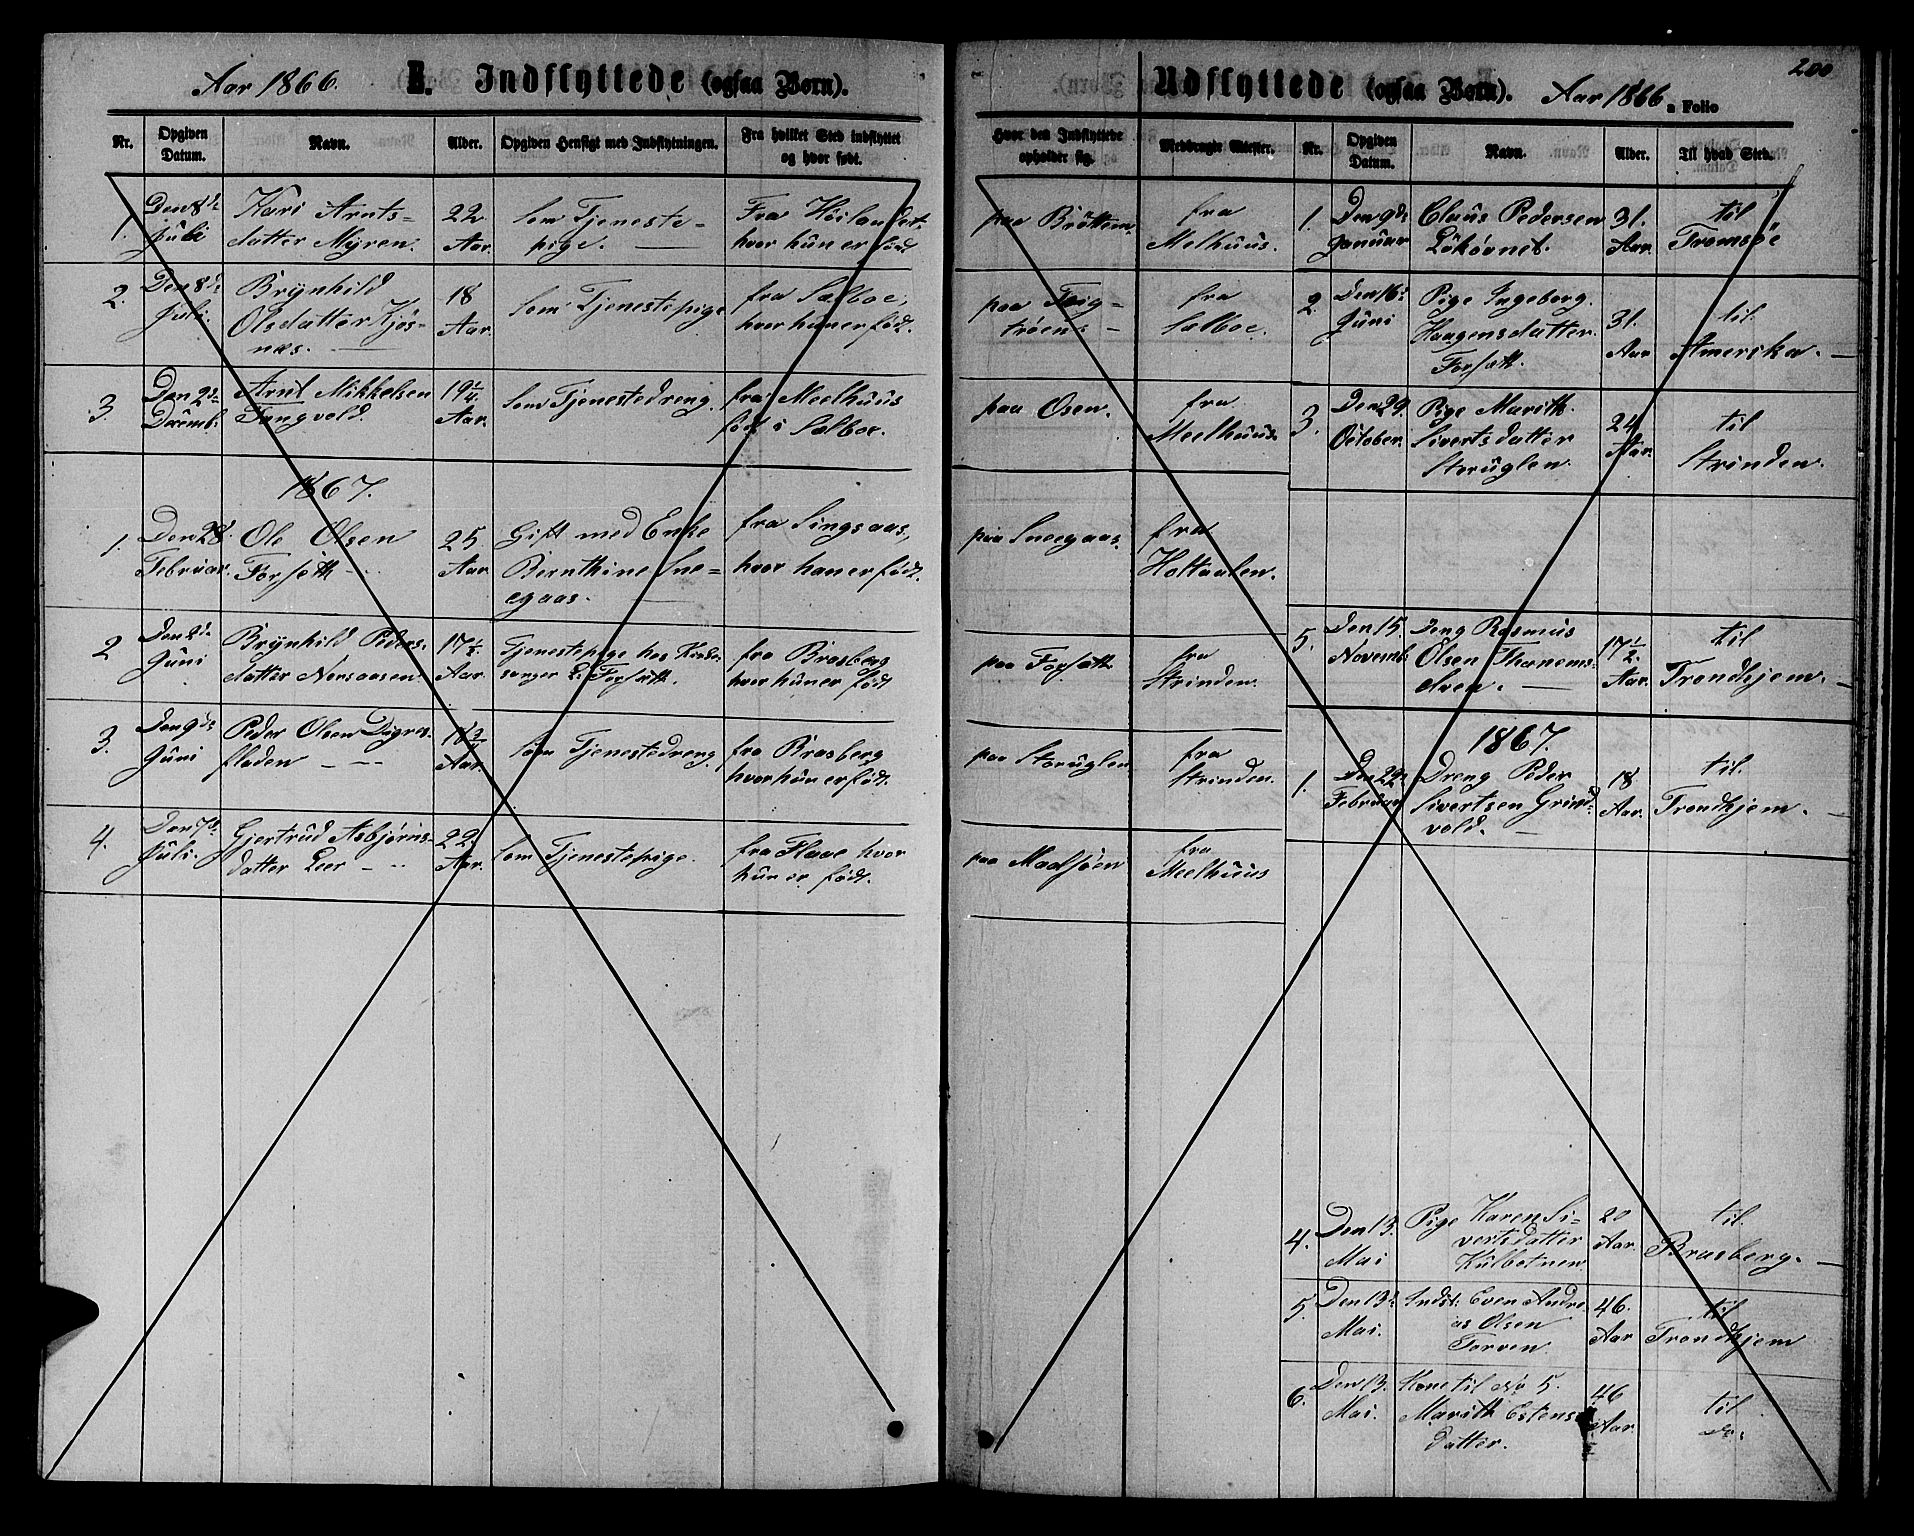 Aar 1866. E. Indflyttede (ogsaa Børn).
Nr. Opgiven Datum. Navn. Alder. Opgiven Hensigt med Indflytningen. Fra hvilket Sted indflyttet og hvor født.
1. Den 8de Kari Arnts= 22 Som Tjeneste= Fra
Juli datter Myren. Aar. pige. hvor hun er født
2. Den 8de Brynhild 18 Som Tjenestepige fra Sælboe,
Juli. Olsdatter Kjøs= Aar. hvor hun er født.
næs.
3. Den 2de Arnt Mikkelsen 19 1/4 Som Tjenestedreng. fra Meelhuus
Decemb. Tangvold. Aar. født i Sælboe.
1867.
1. Den 28. Ole Olsen 25 Gift med Enke fra Singsaas,
Februar. Forseth Aar Bernthine Sne= hvor han er født.
egaas.
2 Den 2de Brynhild Peders. 17 1/2. Tjenestepige hos fra Brasberg
Juni datter Norsaasen. Aar. sanger Forseth. hvor hun er født
3. Den 9de Peder Olsen Digres. 18 3/4 Som Tjenestedreng. fra Brasberg
Juni fladen Aar. hvor hun er født.
4. Den 7de Gjertrud Asbjørns= 22. Som Tjenestepige. fra Flaae hvor
Juli. datter Leer Aar. hun er født.
Udflyttede (ogsaa Børn). Aar 1866. Folio
200
Hvor den Indflyttede opholder sig. Medbragte Attester. Nr. Opgiven Datum. Navn. Alder. Til hvad Sted.
paa Bröttem. fra 1. Den 9de Claus Pedersen 31. til
Melhuus. Januar Lökövnet. Aar. Tromsöe
paa fra 2. Den 16de Pige Ingeborg. 31. til.
Sælboe. Juni Haagensdatter. Aar Amerika.
Forseth.
paa Osen. fra 3. Den 29. Pige Marith. 24 til
Meelhuus. October. Sivertsdatter Aar. Strinden.
Storuglen.
paa Sneegaas. fra
Holtaalen.
paa Forseth fra 5. Den 15. Dreng Rasmus 17 1/2. til
Strinden. Novemb. Olsen Aar. Trondhjem.
paa Storuglen. fra 1867.
Strinden. 1. Den 22. Dreng Peder 18 til.
Februar Sivertsen Grind= Aar. Trondhjem.
vold.
paa Madsjöen fra
Meelhuus
4. Den 13. Pige Karen Si= 20 til.
Mai vertsdatter Aar. Brasberg.
Kulbotnen
5. Den 13de Indst: Even Andre= 46. til
Mai. as Olsen Aar Trondhjem
Torven.
6. Den 13. Kone til No 5. 46 til
Mai. Marith Estens= Aar. do.
datter.